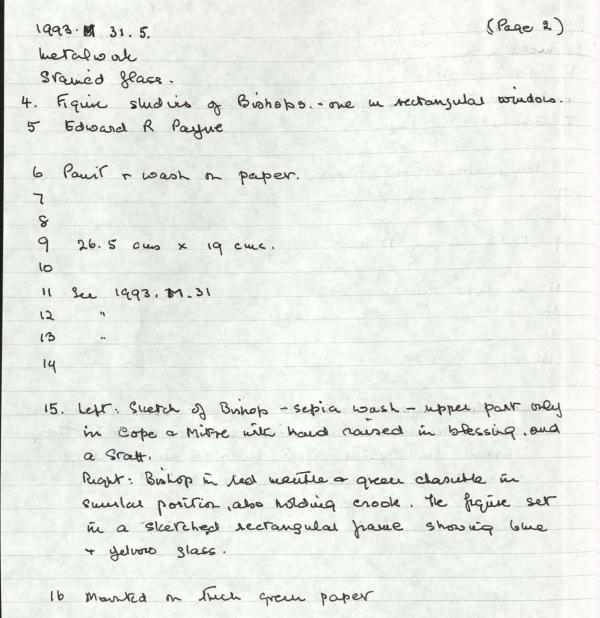 1993. M 31. 5. (Page 2)
Metalwork
Stained Glass.
4. Figure studies of Bishops. - one in rectangular window.
5 Edward R Payne
6 Paint + wash on paper.
7
8
9 26.5 cms x 19 cms.
10
11 See 1993. M. 31
12 "
13 "
14
15. Left: Sketch of Bishop - sepia wash - upper part only
in Cope & Mitre with hand raised in blessing, and
a Staff.
Right: Bishop in red mantle & green chasuble in
similar position, also holding crook. The figure set
in a sketched rectangular frame showing blue
+ yellow glass.
16 Mounted on thick green paper